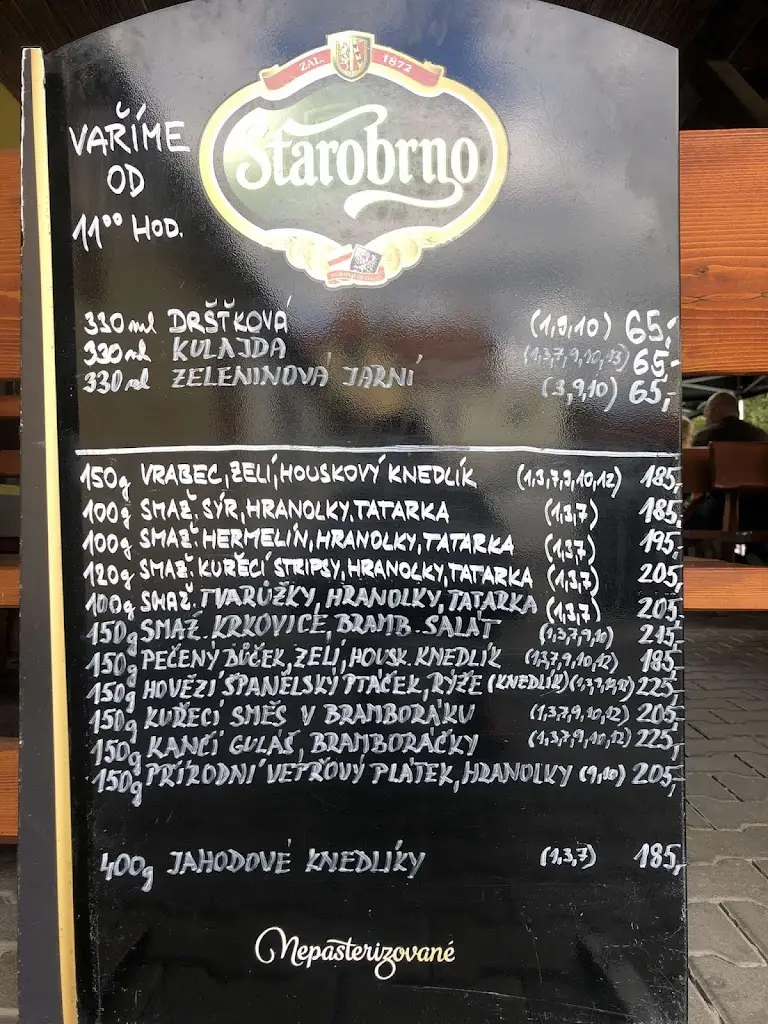 ZAL. 1872
Starobrno
VAŘÍME
OD
11⁰⁰ HOD.
330 ml DRŠŤKOVÁ (1,9,10) 65,-
330 ml KULAJDA (1,3,7,9,10,13) 65,-
330 ml ZELENINOVÁ JARNÍ (3,9,10) 65,-
150g VRABEC, ZELÍ, HOUSKOVÝ KNEDLÍK (1,3,7,9,10,12) 185,
100g SMAŽ. SÝR, HRANOLKY, TATARKA (1,3,7) 185,
100g SMAŽ. HERMELÍN, HRANOLKY, TATARKA (1,3,7) 195,
120g SMAŽ. KUŘECÍ STRIPSY, HRANOLKY, TATARKA (1,3,7) 205,
100g SMAŽ. TVARŮŽKY, HRANOLKY, TATARKA (1,3,7) 205,
150g SMAŽ. KRKOVICE, BRAMB. SALÁT (1,3,7,9,10) 215,
150g PEČENÝ BŮČEK, ZELÍ, HOUSK. KNEDLÍK (1,3,7,9,10,12) 185,
150g HOVĚZÍ ŠPANĚLSKÝ PTÁČEK, RÝŽE (KNEDLÍK) 225,
150g KUŘECÍ SMĚS V BRAMBORÁKU (1,3,7,9,10,12) 205,
150g KANČÍ GULÁŠ, BRAMBORÁČKY (1,3,7,9,10,12) 225,
150g PŘÍRODNÍ VEPŘOVÝ PLÁTEK, HRANOLKY (9,10) 205,-
400g JAHODOVÉ KNEDLÍKY (1,3,7) 185,
Nepasterizované